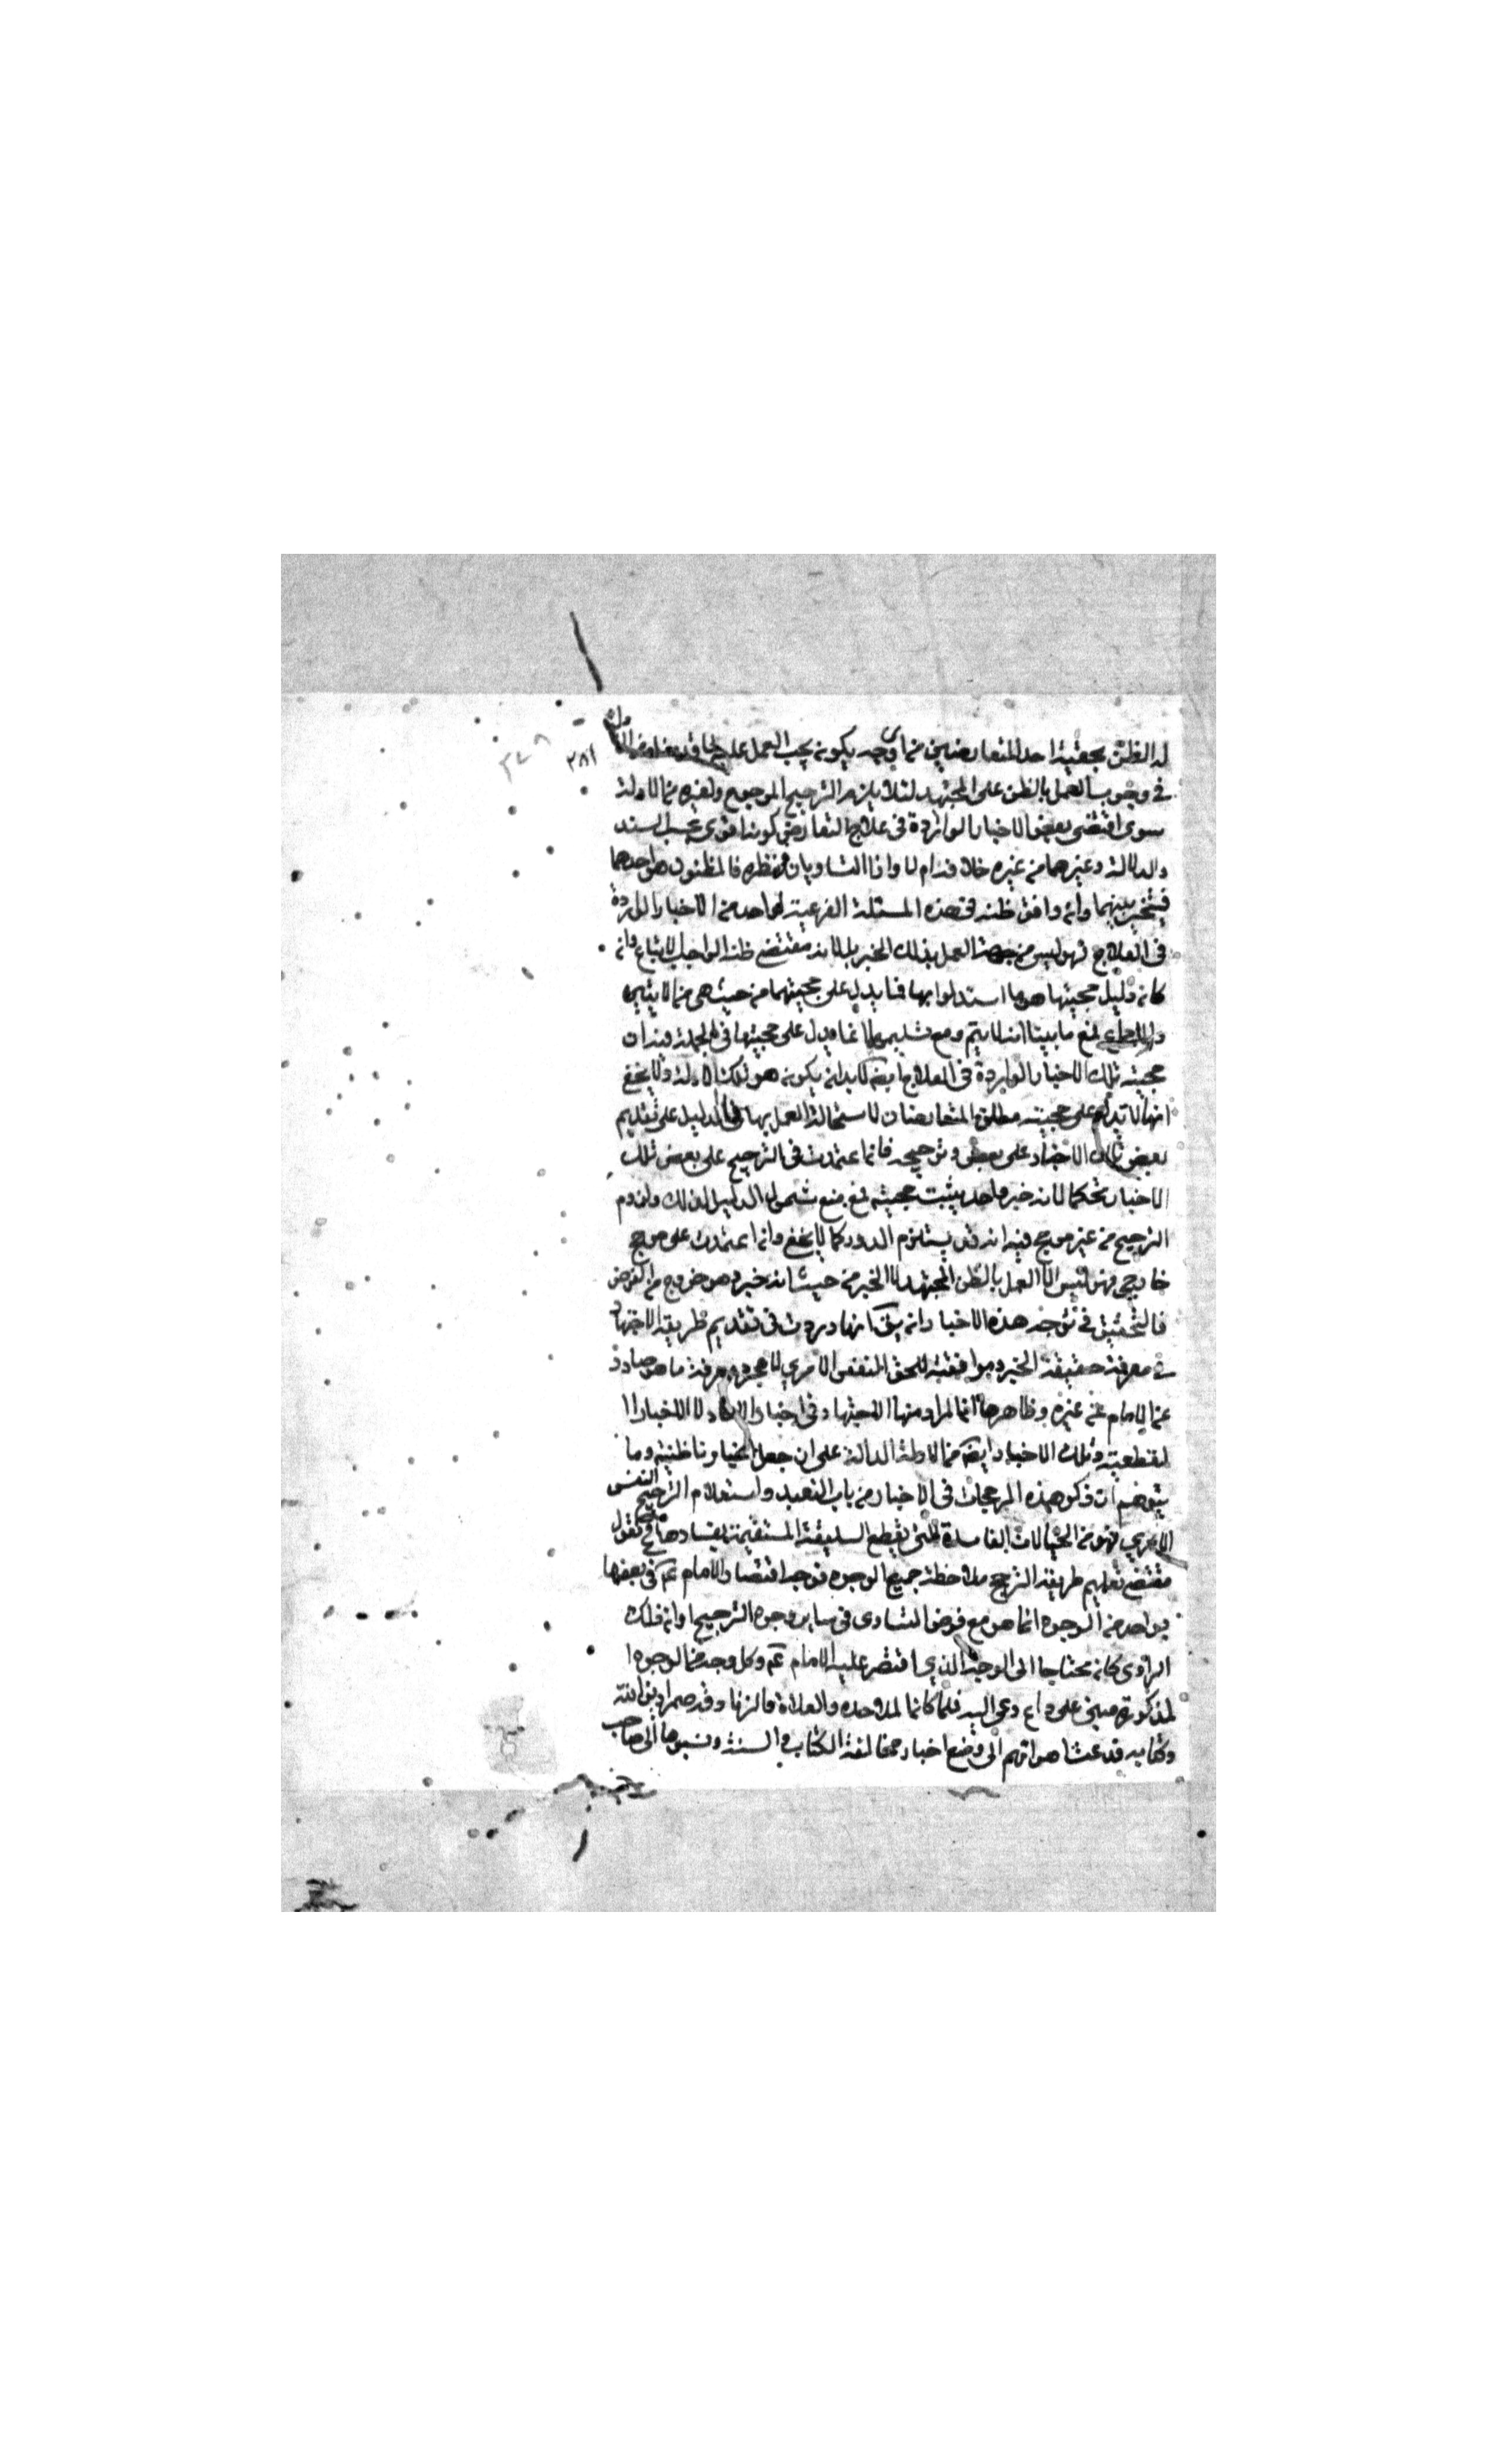 له الظن بحقية احد المتعارضين من اي وجه يكون يجب العمل عليه
في وجوب العمل بالظن على المجتهد لئلا يلزم الترجيح المرجوح ولغيره من الادلة
سوى اقتضى بعض الاخبار الواردة في علاج التعارض كونه اقوى بحسب السند
والدلالة وغيرهما من غيره خلافه ام لا واذا التساويان في نظره فالمظنون هو احدهما
فيتخير بينهما وان وافق ظنه في هذه المسئلة الفرعية لواحد من الاخبار الواردة
في العلاج فهو ليس من جهة العمل بذلك الخبر بل لانه مقتضى ظنه الواجب الاتباع وان
كان دليل حجيتها هو ما استدلوا بها فيما يدل على حجيتهما من حيث هي من الايتين
والاجماع فمع ما بينا انه لا يتم ومع تسليم انما يدل على حجيتها في الجملة فيه ان
حجية تلك الاخبار الواردة في العلاج ايضا لابد ان يكون هو تلك الادلة ولا يخفى
انها لا تدل على حجية مطلق المتعارضات لاستحالة العمل بها فما الدليل على تقديم
بعض تلك الاخبار على بعض وترجيحه فان اعتمدت في الترجيح على بعض تلك
الاخبار تحكما لانه خبر واحد يثبت حجيته فمع منع شمول الدليل لذلك ولزوم
الترجيح من غير مرجح فيه انه قد يستلزم الدور كما لا يخفى وان اعتمدت على مرجح
خارجي فهو ليس الا العمل بالظن المجتهد لا الخبر من حيث انه خبر وهو خروج من الفرض
فالتحقيق في توجه هذه الاخبار ان يقال انها وردت في تقديم طريقة الاجتهاد
في معرفة حقيقة الخبر وموافقته للحق النفس الامري لا مجرد معرفة ما هو صادر
عن الامام عن غيره وظاهرها انما المراد منها الاجتهاد في اخبار الاحاد لا الاخبار ا
لقطعية وتلك الاخبار ايضا من الادلة الدالة على ان جعل اخبارنا ظنية وما
يتوهم ان ذكر هذه المرجحات في الاخبار من باب التعبد واستعلام الترجيح النفس
الامري فهو من الخيالات الفاسدة التي يقطع السليقة المستقيمة بفسادها فح نقول
مقتضى تعليم طريقة الترجيح ملاحظة جميع الوجوه فوجه اقتصار الامام ع في بعضها
بواحد من الوجوه انما هو مع فرض التساوي في ساير وجوه الترجيح او انه ذلك
الراوي كان محتاجا الى الوجه الذي اقتصر عليه الامام ع وكل وجه من الوجوه ا
لمذكورة مبني على داع دعى اليه فلما كان الملاحدة والغلاة والزنادقة صرادين الله
وكتابه قد عثا هواتهم الى وضع اخبار مخالفة الكتاب والسنة ونسبوها الى صاحب
٣٨١